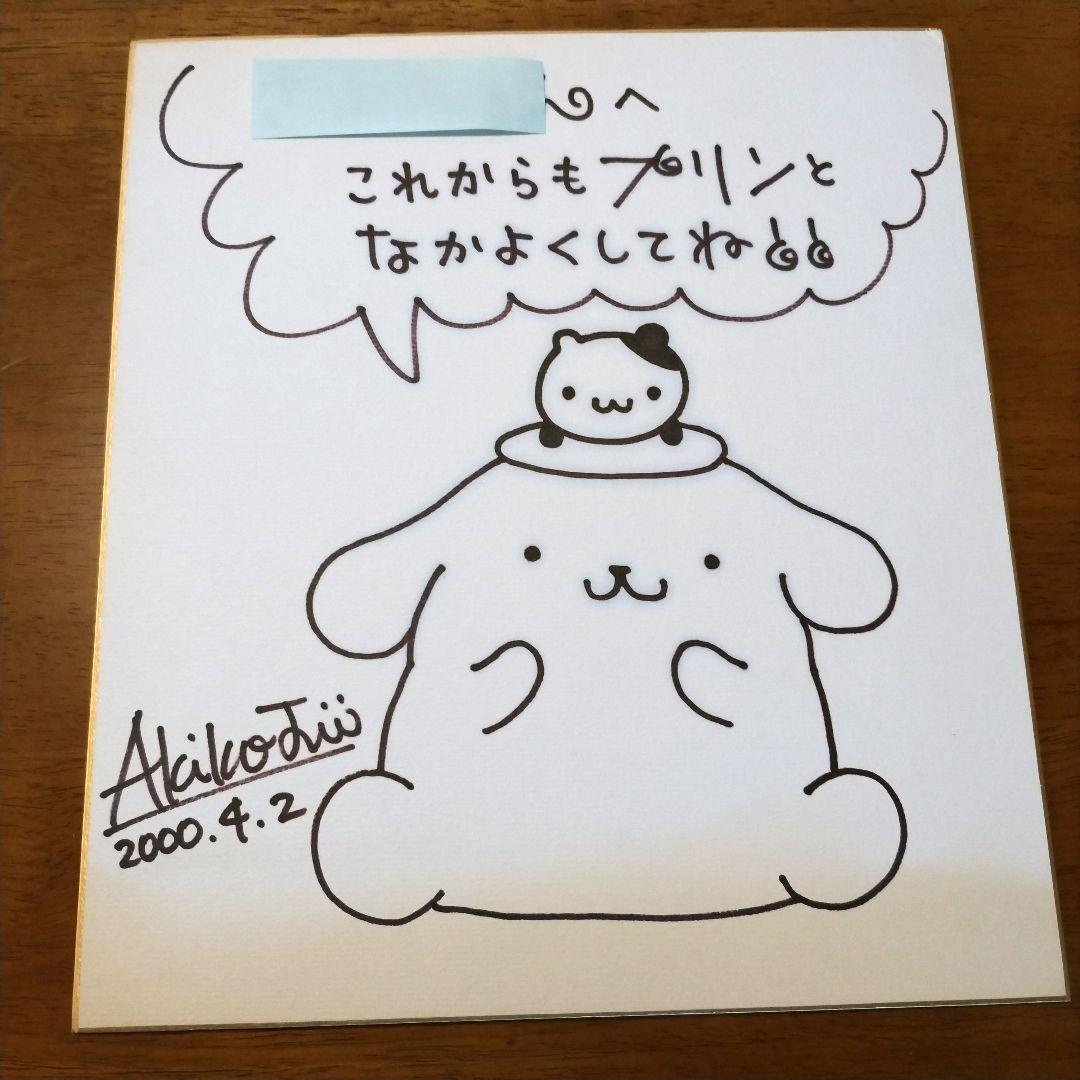 ん へ
これからもプリンと
なかよくしてね!!
Akiko Fujii
2000.4.2